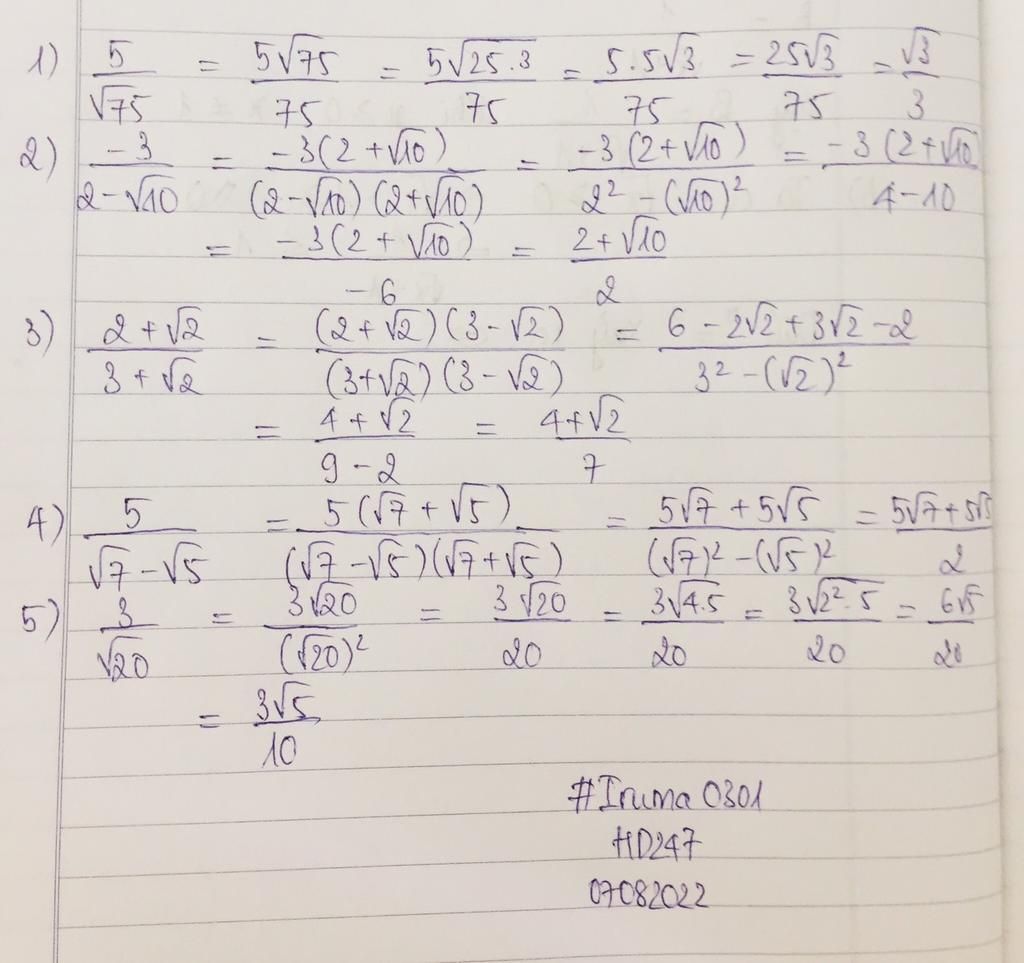 1) 5/√75 = 5√75/75 = 5√25.3/75 = 5.5√3/75 = 25√3/75 = √3/3
2) -3/2-√10 = -3(2+√10)/(2-√10)(2+√10) = -3(2+√10)/2²-(√10)² = -3(2+√10)/4-10
= -3(2+√10)/-6 = 2+√10/2
3) 2+√2/3+√2 = (2+√2)(3-√2)/(3+√2)(3-√2) = 6-2√2+3√2-2/3²-(√2)²
= 4+√2/9-2 = 4+√2/7
4) 5/√7-√5 = 5(√7+√5)/(√7-√5)(√7+√5) = 5√7+5√5/(√7)²-(√5)² = 5√7+5√5/2
5) 3/√20 = 3√20/(√20)² = 3√20/20 = 3√4.5/20 = 3√2².5/20 = 6√5/20
= 3√5/10
#Iruma0301
HD247
07082022